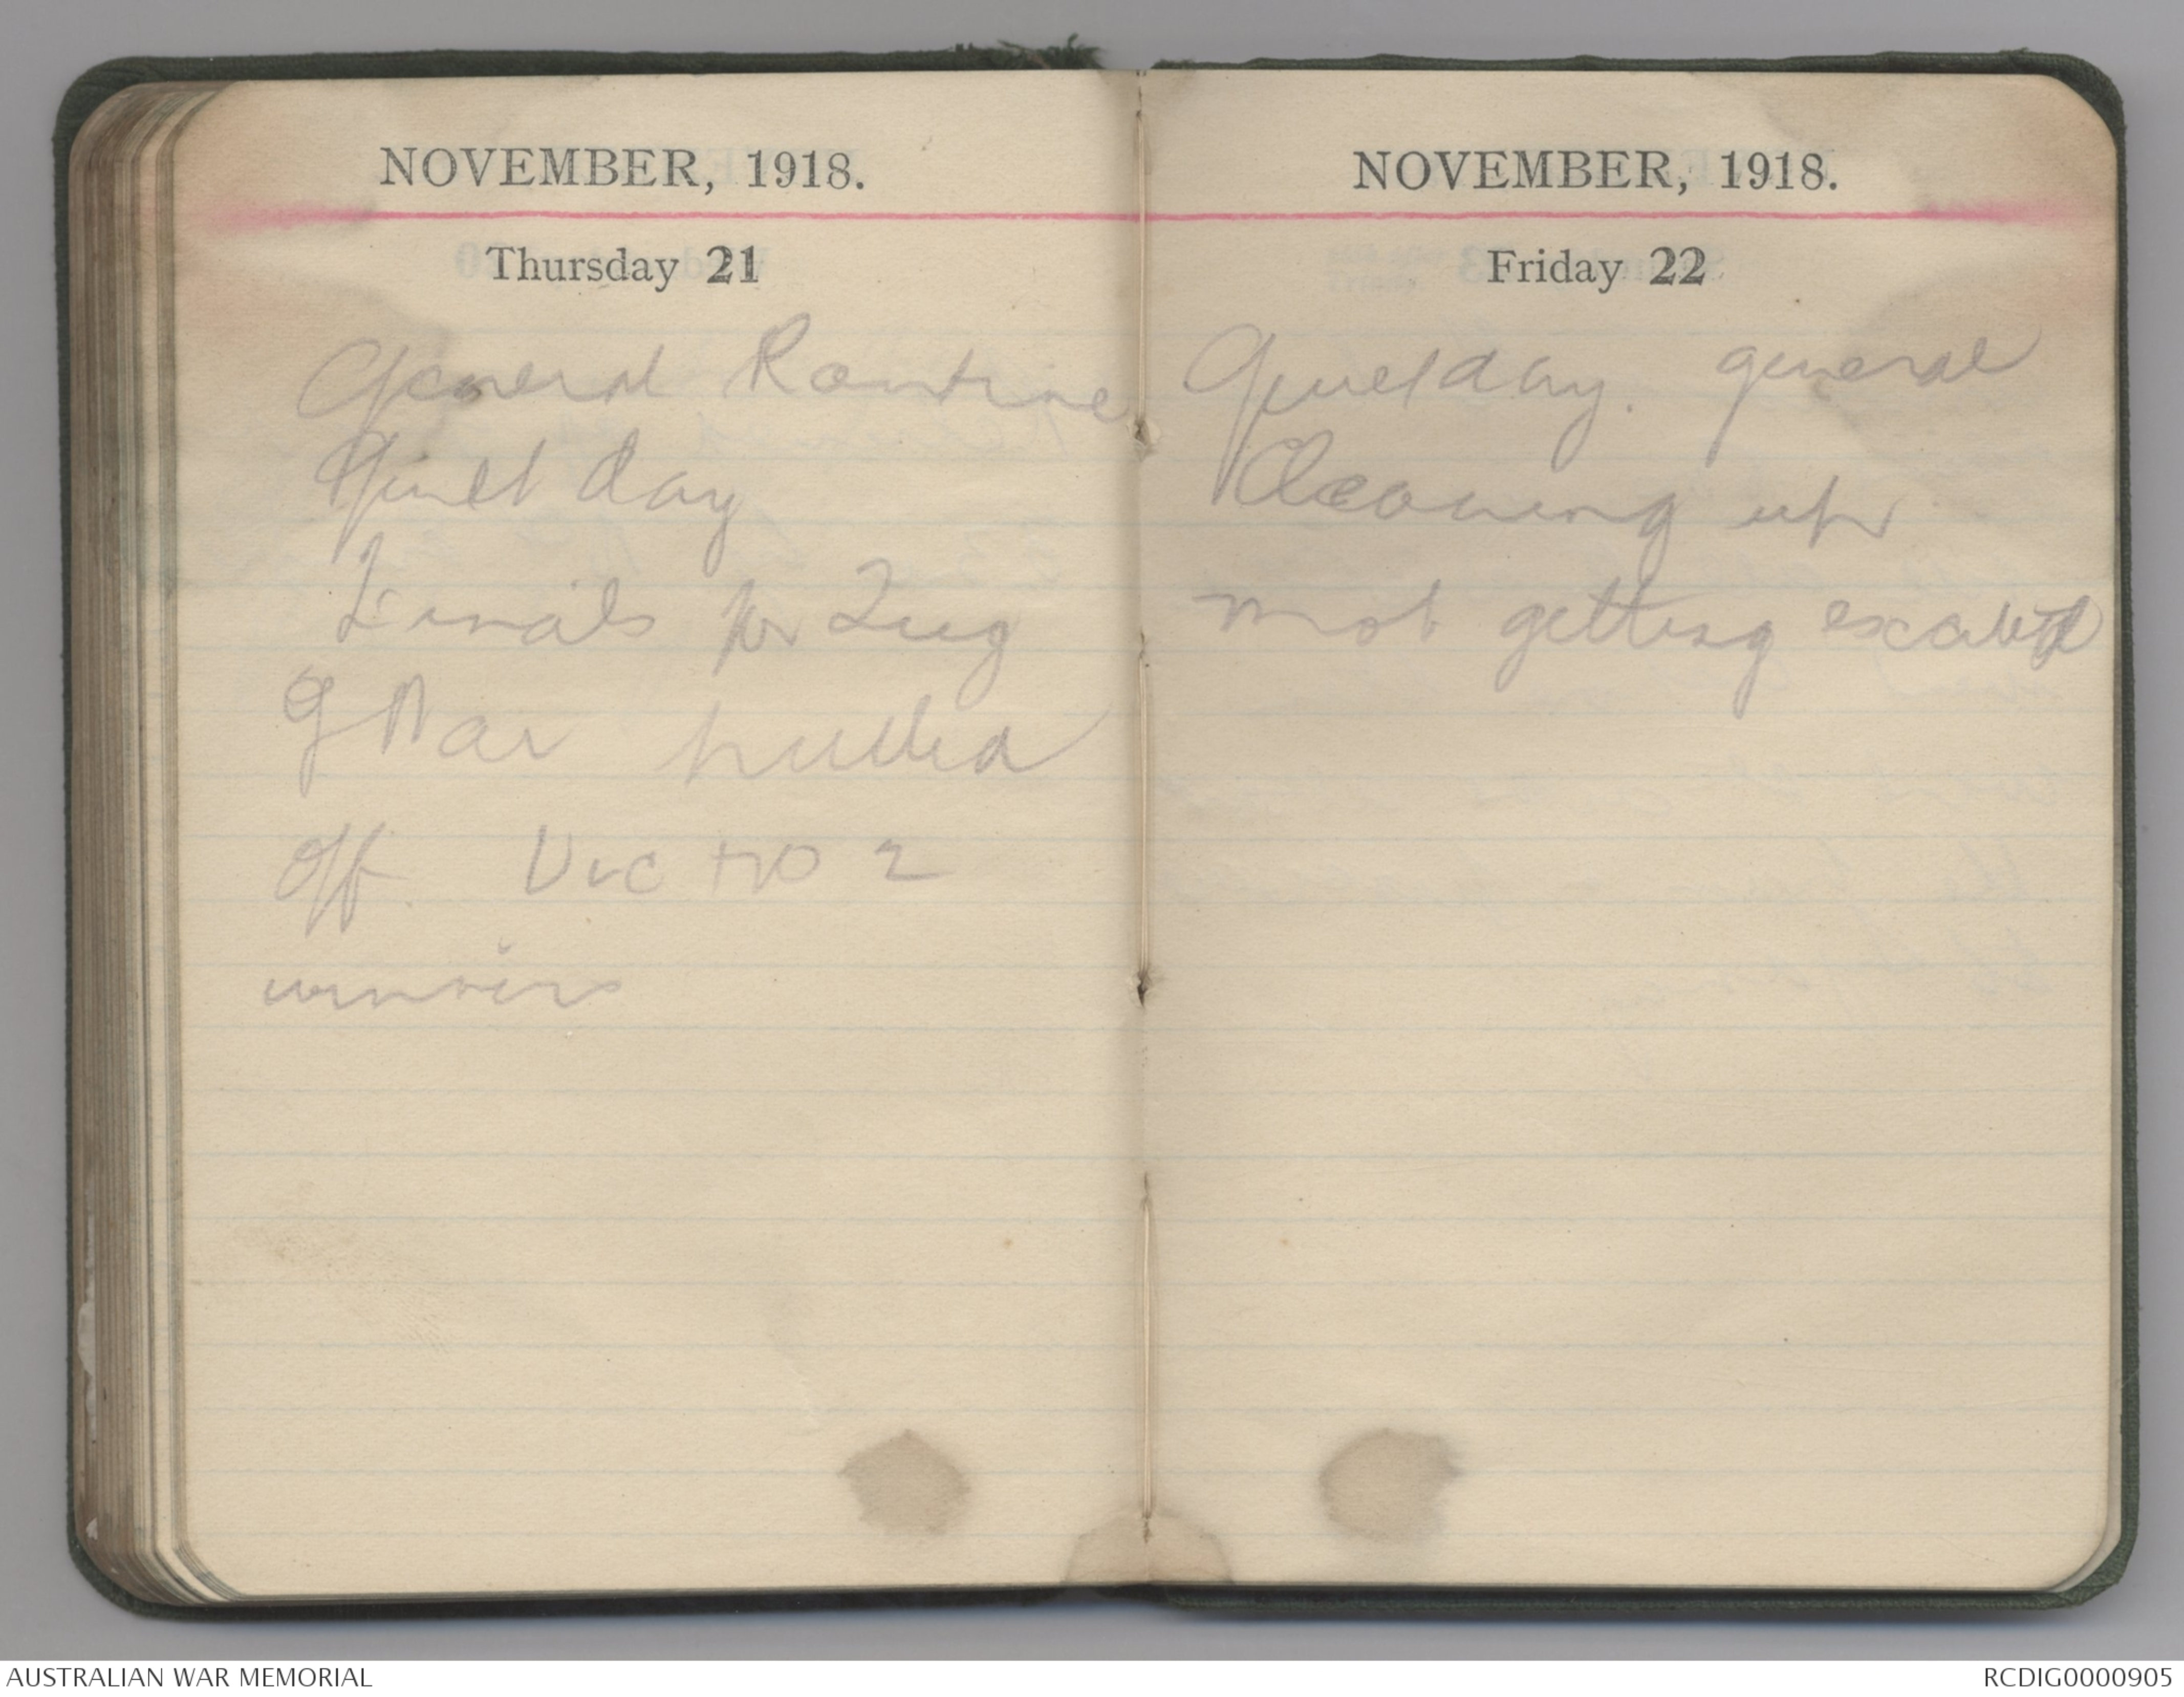 NOVEMBER, 1918.
Thursday 21
General Routine
Quiet day
Finals for Tug
of War pulled
off. Vic no 2
winners
NOVEMBER, 1918.
Friday 22
Quiet day. general
Cleaning up
mob getting excited
AUSTRALIAN WAR MEMORIAL
RCDIG0000905